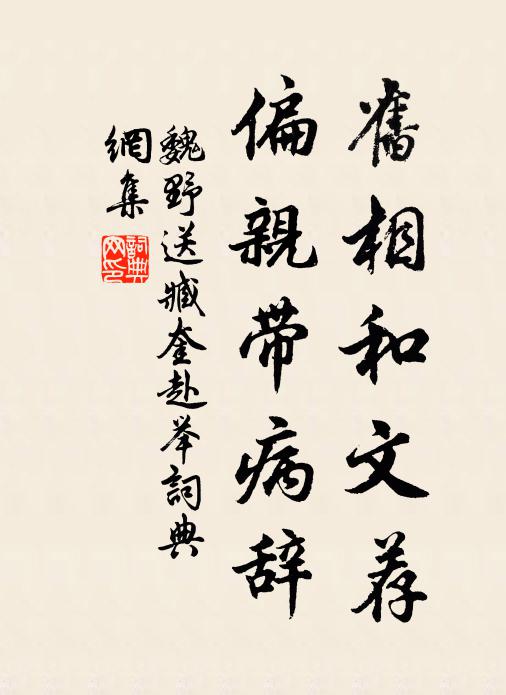 舊相和文荐
偏親带病辞
魏野送臧奎赴举詞典
網集
詞典网印